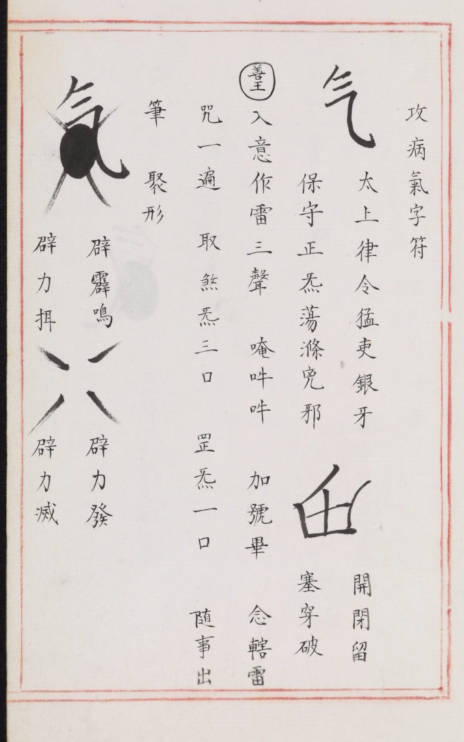 攻病氣字符
气
太上律令猛吏銀牙
保守正炁蕩滌兇邪
開閉留
塞穿破
善王
入意作雷三聲 唵吽吽 加號畢 念轄雷
咒一遍 取煞炁三口 罡炁一口 随事出
筆 聚形
氣
辟靂鳴 辟力發
辟力揖 辟力滅